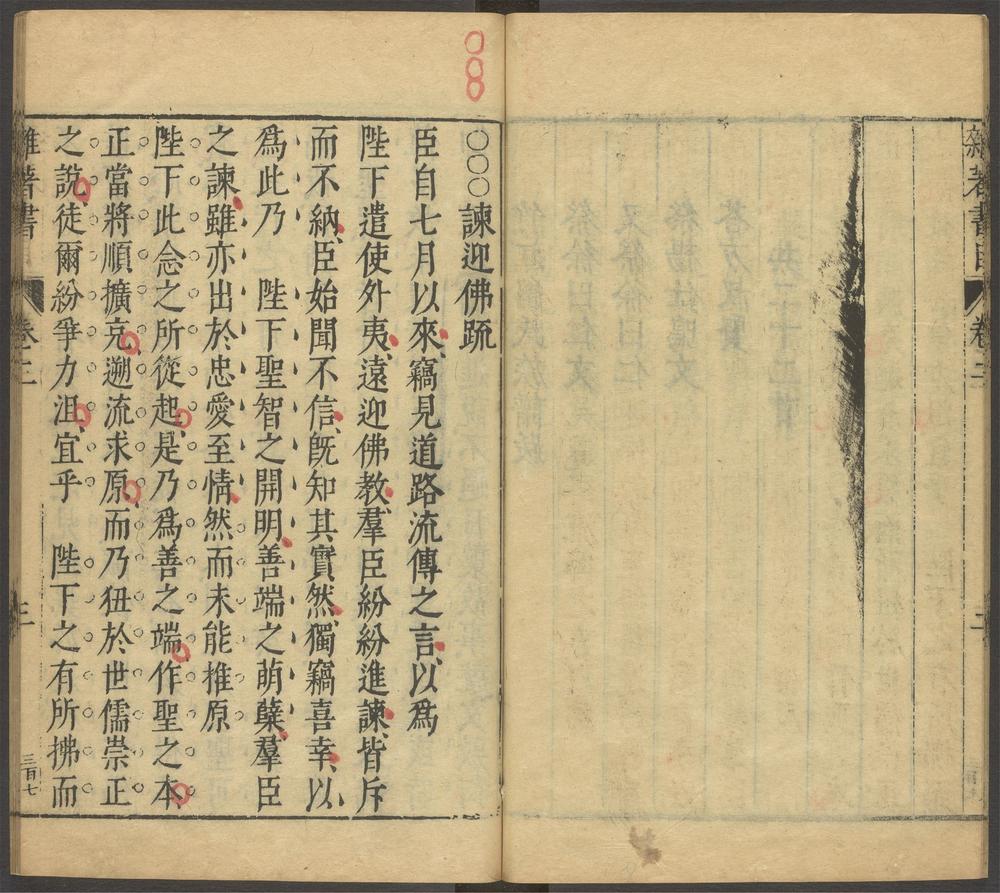 雜著書
卷三
二
〇〇〇諫迎佛疏
臣自七月以來竊見道路流傳之言以爲
陛下遣使外夷遠迎佛教羣臣紛紛進諫皆斥
而不納臣始聞不信旣知其實然獨竊喜幸以
爲此乃 陛下聖智之開明善端之萌蘖羣臣
之諫雖亦出於忠愛至情然而未能推原
陛下此念之所從起是乃爲善之端作聖之本
正當將順擴充遡流求原而乃狃於世儒崇正
之說徒爾紛爭力沮宜乎 陛下之有所拂而
雜著書 卷三 三 三百七